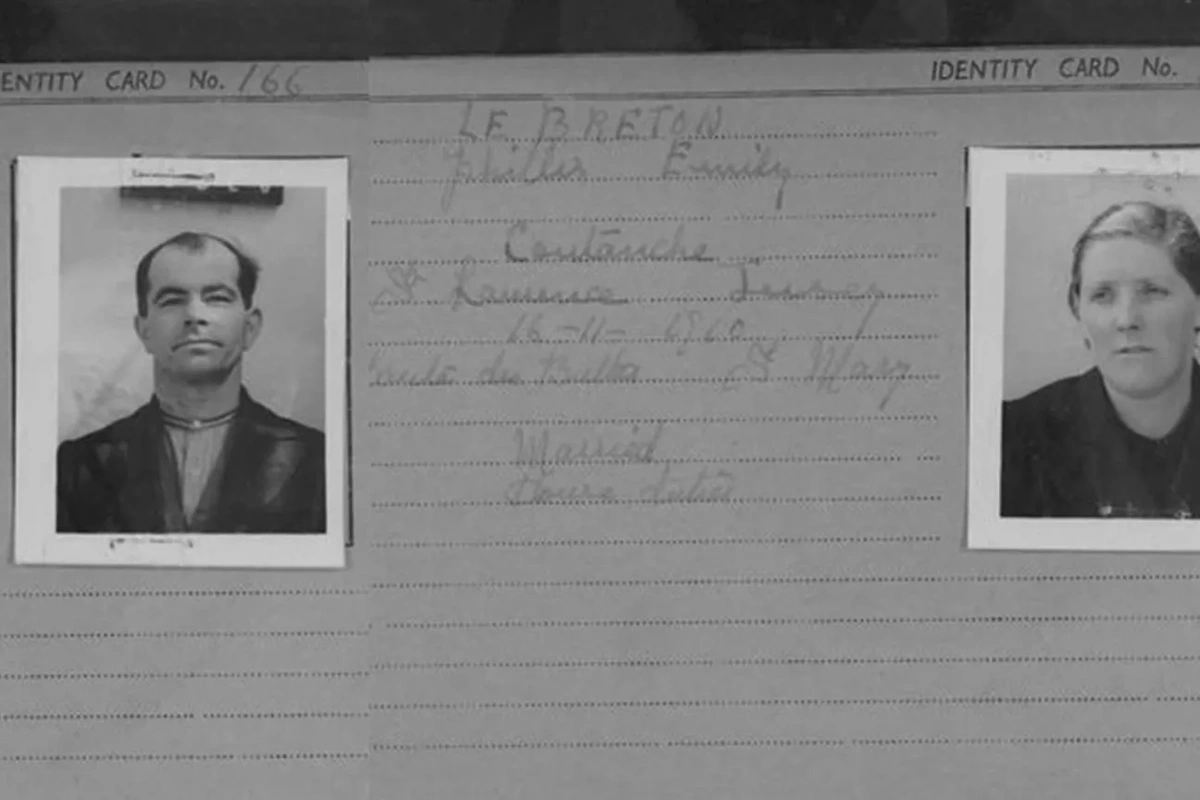 ENTITY CARD No. 166
IDENTITY CARD No.
LE BRETON
Phillis Emily
Coutanche
St Lawrence Jersey
16-11-
du St Mary
Married
House